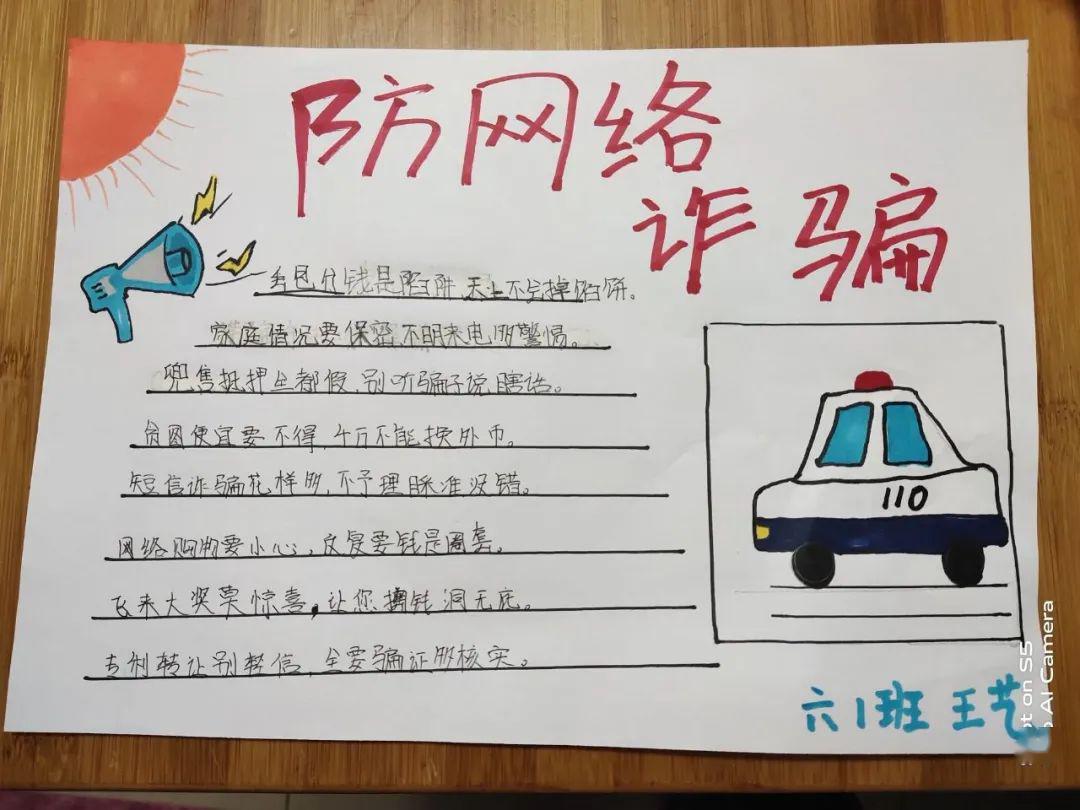 防网络
诈骗
钱是陷阱,天上不会掉馅饼。
家庭情况要保密,不明来电多警惕。
兜售抵押全都假,别听骗子说瞎话。
贪图便宜要不得,千万不能换外币。
短信诈骗花样多,不予理睬准没错。
网络购物要小心,反复要钱是圈套。
飞来大奖莫惊喜,让你掏钱洞无底。
专利转让别轻信,全要骗证多核实。
110
六1班 王艺
ot on S5
AI Camera